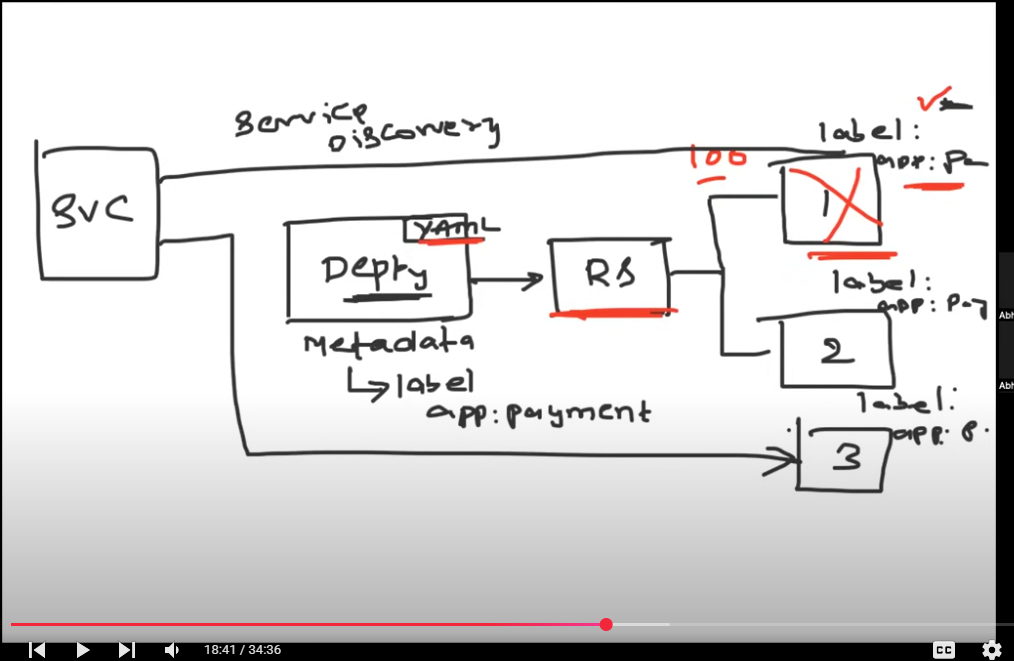 Service
Discovery
SVC
YAML
Deply
Metadata
label
app:payment
RS
100
label:
app: Pa
1
label:
app: Pay
2
label:
app: P.
3
Abh
Abh
18:41 / 34:36
CC